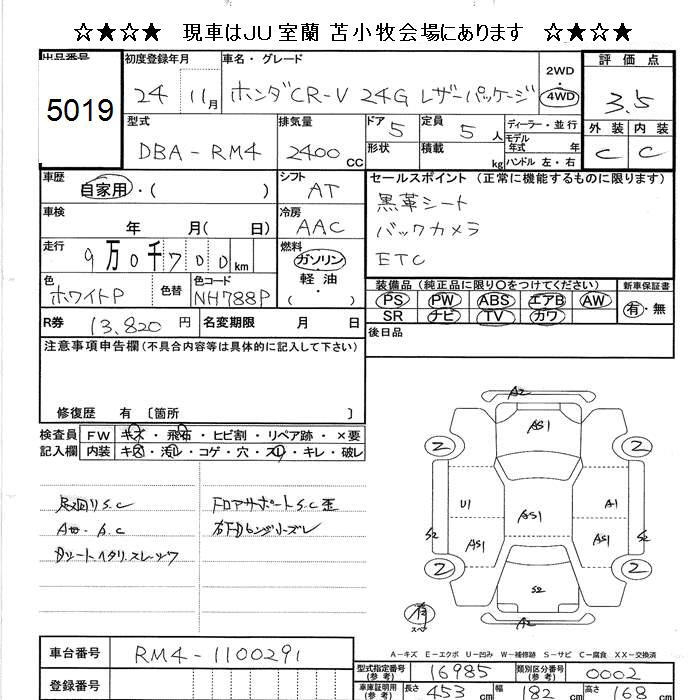 ☆★☆★ 現車はJU室蘭 苫小牧会場にあります ☆★☆★
出品番号 初度登録年月 車名・グレード 2WD・4WD 評価点
5019 24 11月 ホンダCR-V 24G レザーパッケージ 3.5
型式 排気量 ドア 5 定員 5人 ディーラー・並行 外装 内装
DBA-RM4 2400CC 形状 積載 kg モデル年式 年 C C
ハンドル 左・右
車歴 自家用・( ) シフト AT セールスポイント(正常に機能するものに限ります)
車検 年 月( 日) 冷房 AAC 黒革シート
走行 9万0千700km 燃料 ガソリン・軽油・ バックカメラ
ETC
色 ホワイトP 色替 色コード NH788P 装備品(純正品に限り○をつけてください) 新車保証書
PS PW ABS エアB AW 有・無
R券 13,820円 名変期限 月 日 SR ナビ TV カワ
注意事項申告欄(不具合内容等は具体的に記入して下さい) 後日品
修復歴 有〔箇所 〕
検査員 FW キズ・飛石・ヒビ割・リペア跡・×要
記入欄 内装 キズ・汚レ・コゲ・穴・スレ・キレ・破レ
足廻りS.C フロアサポートS.C歪
A2
AS1
2 2
U1 A1
AS1
S2 AS1 AS1 S2
2 2
S2
有
スペア
A2
A-キズ E-エクボ U-凹み W-補修跡 S-サビ C-腐食 XX-交換済
車台番号 RM4-1100291
登録番号
型式指定番号(参考) 16985 類別区分番号(参考) 0002
車庫証明用(参考) 長さ 453cm 幅 182cm 高さ 168cm